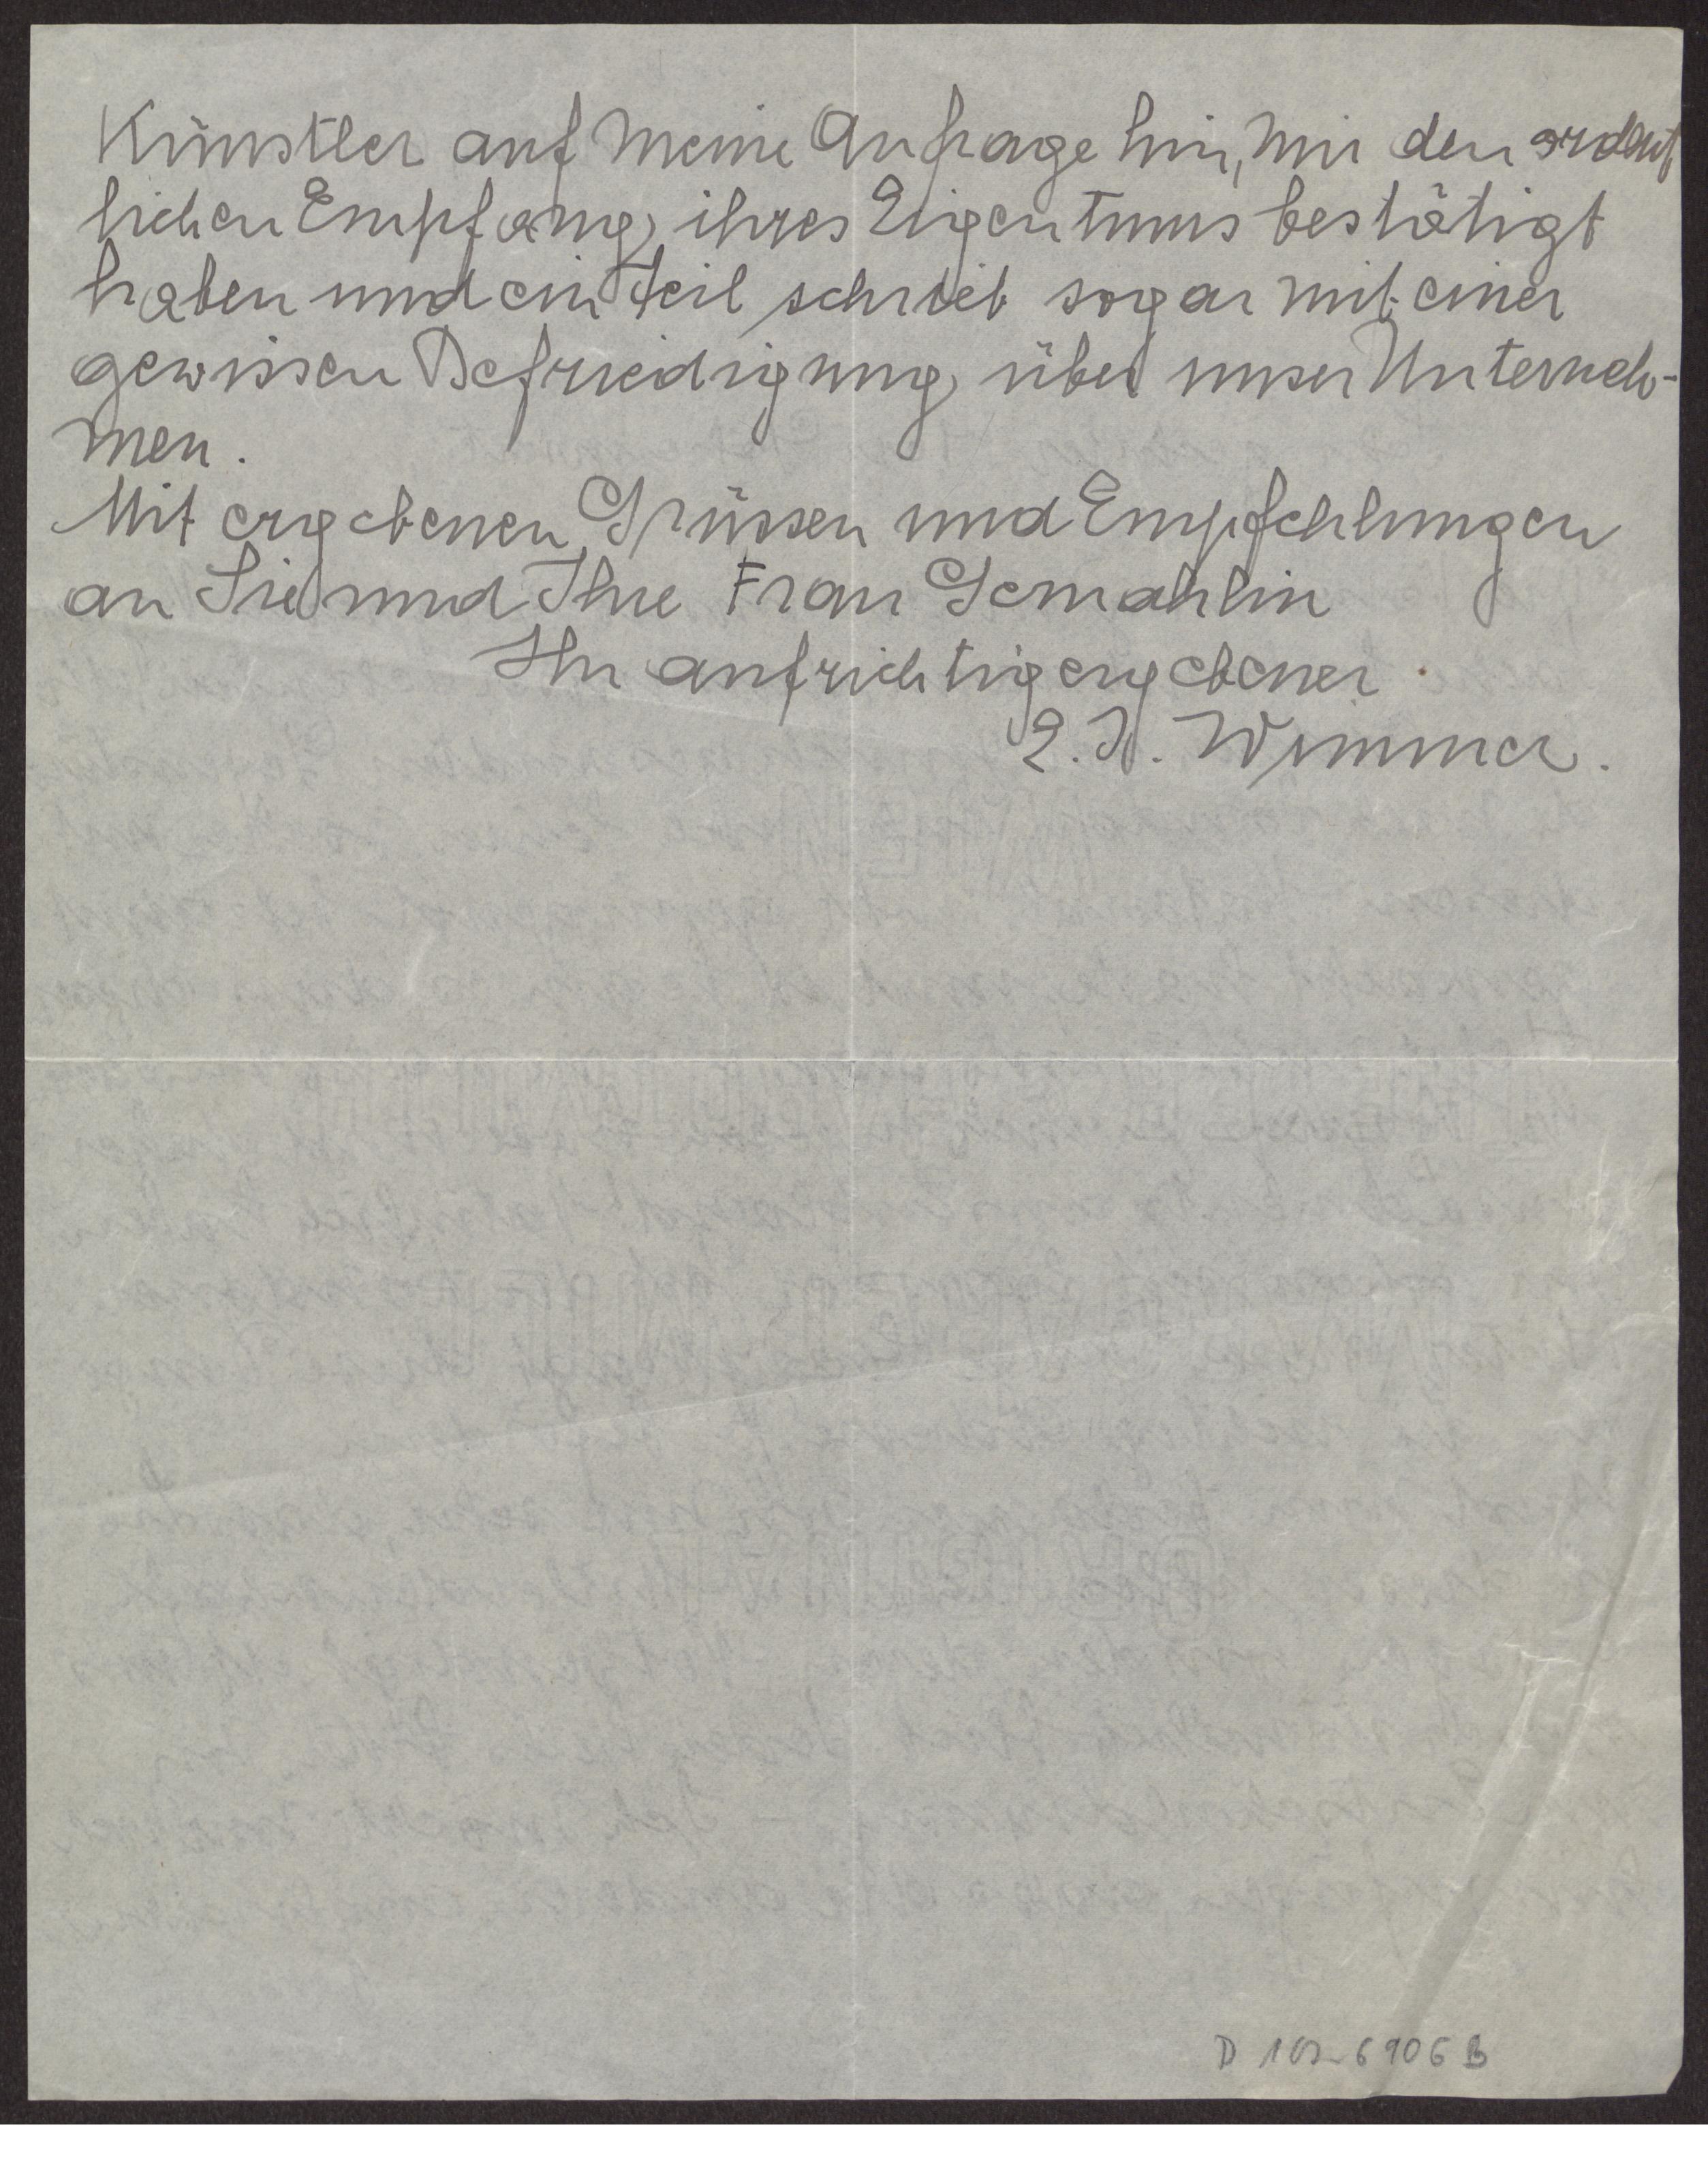 Künstler auf meine Anfrage hin, mir den ordent
lichen Empfang ihres Eigentums bestätigt
haben und ein Teil schrieb sogar mit einer
gewissen Befriedigung über unser Unterneh-
men.
Mit ergebenen Grüssen und Empfehlungen
an Sie und Ihre Frau Gemahlin
Ihr aufrichtig ergebener
E.J. Wimmer.